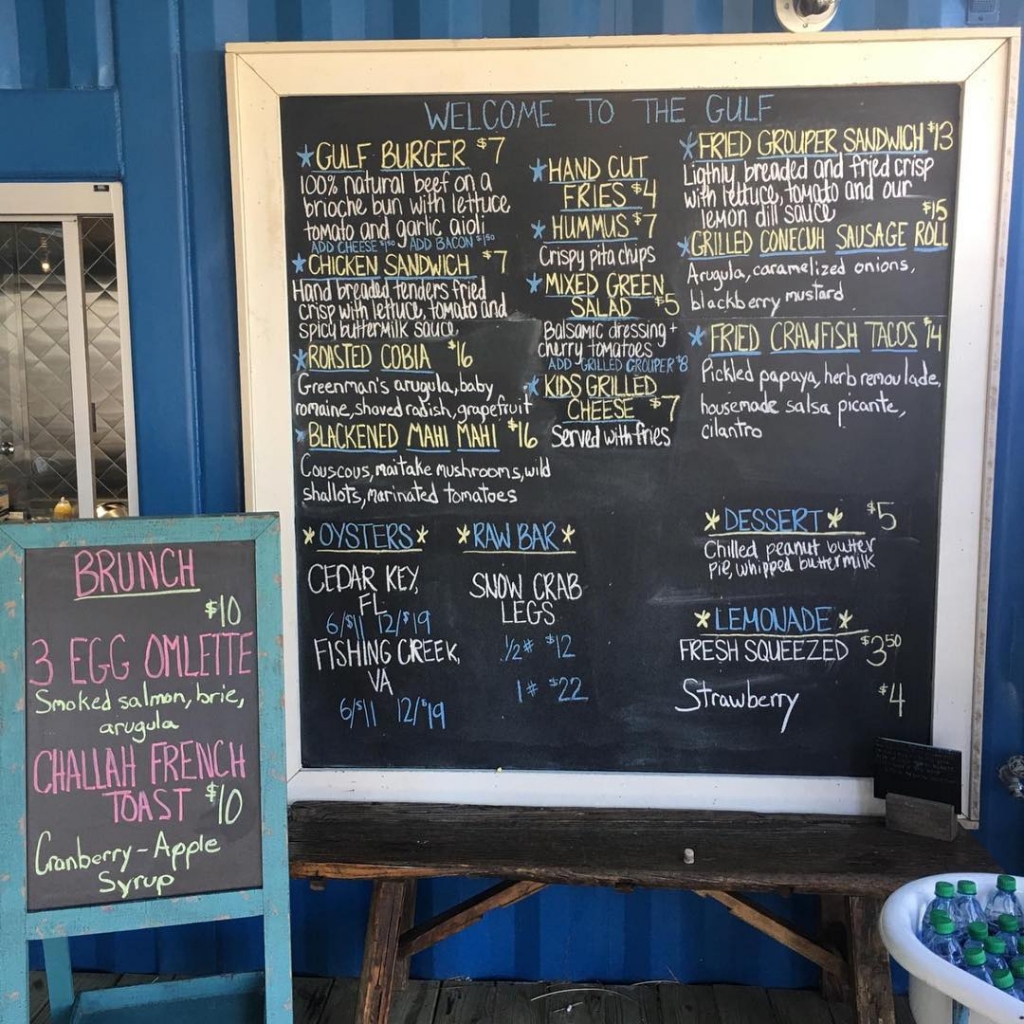 WELCOME TO THE GULF
GULF BURGER $7
100% natural beef on a
brioche bun with lettuce,
tomato and garlic aioli
ADD CHEESE $1.50 ADD BACON $1.50
CHICKEN SANDWICH $7
Hand breaded tenders fried
crisp with lettuce, tomato and
spicy buttermilk sauce
ROASTED COBIA $16
Greenman's arugula, baby
romaine, shaved radish, grapefruit
BLACKENED MAHI MAHI $16
Couscous, maitake mushrooms, wild
shallots, marinated tomatoes
HAND CUT
FRIES $4
HUMMUS $7
Crispy pita chips
MIXED GREEN
SALAD $5
Balsamic dressing +
cherry tomatoes
ADD GRILLED GROUPER $8
KIDS GRILLED
CHEESE $7
Served with fries
FRIED GROUPER SANDWICH $13
Ligthly breaded and fried crisp
with lettuce, tomato and our
lemon dill sauce
$15
GRILLED CONECUH SAUSAGE ROLL
Arugula, caramelized onions,
blackberry mustard
FRIED CRAWFISH TACOS $14
Pickled papaya, herb remoulade,
housemade salsa picante,
cilantro
OYSTERS
CEDAR KEY,
FL
6/$11 12/$19
FISHING CREEK,
VA
6/$11 12/$19
RAW BAR
SNOW CRAB
LEGS
1/2# $12
1# $22
DESSERT $5
Chilled peanut butter
pie, whipped buttermilk
LEMONADE
FRESH SQUEEZED $3.50
Strawberry $4
BRUNCH
$10
3 EGG OMLETTE
Smoked salmon, brie,
arugula
CHALLAH FRENCH
TOAST $10
Cranberry-Apple
Syrup